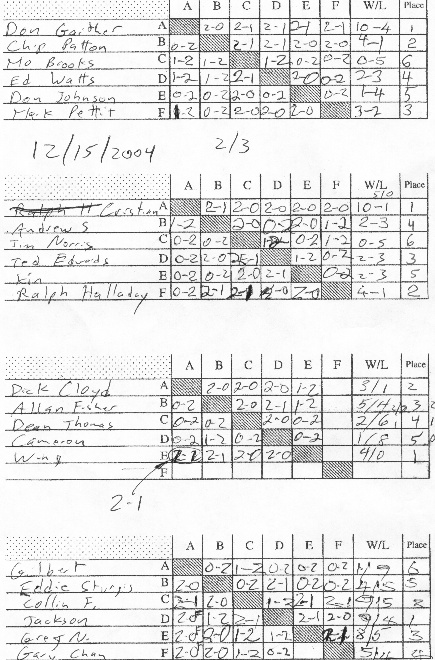 A B C D E F W/L Place
Don Gaither A 2-0 2-1 2-1 2-1 2-1 10-4 1
Chip Patton B 0-2 2-1 2-1 2-0 2-0 4-1 2
Mo Brooks C 1-2 1-2 1-2 0-2 0-2 0-5 6
Ed Watts D 1-2 1-2 2-1 2-0 0-2 2-3 4
Don Johnson E 0-2 0-2 2-0 0-2 0-2 1-4 5
Mark Pettit F 1-2 0-2 2-0 2-0 2-0 3-2 3
12/15/2004 2/3
A B C D E F W/L Place
Cristian A 2-1 2-0 2-0 2-0 2-0 10-1 1
Andrew S B 1-2 2-0 0-2 2-0 1-2 2-3 4
Tim Norris C 0-2 0-2 0-2 1-2 0-5 6
Ted Edwards D 0-2 2-0 1-2 0-2 2-3 3
Kin E 0-2 0-2 2-0 2-1 0-2 2-3 5
Ralph Halladay F 0-2 2-1 2-1 2-0 4-1 2
A B C D E F W/L Place
Dick Cloyd A 2-0 2-0 2-0 1-2 3/1 2
Allan Fisher B 0-2 2-0 2-1 1-2 5/4 3
Dean Thomas C 0-2 0-2 2-0 0-2 2/6 4
Cameron D 0-2 1-2 0-2 0-2 1/8 5
Wing E 2-1 2-1 2-0 2-0 4/0 1
F
2-1
A B C D E F W/L Place
Gilbert A 0-2 1-2 0-2 0-2 0-2 6
Eddie Sturgis B 2-0 0-2 2-1 0-2 0-2 5
Collin F. C 2-1 2-0 1-2 2-1 2-1 2
Jackson D 2-0 1-2 2-1 2-1 2-0 9/4 1
Greg N. E 2-0 2-0 1-2 1-2 2-1 8/5 3
Gary Chan F 2-0 2-0 1-2 0-2 4